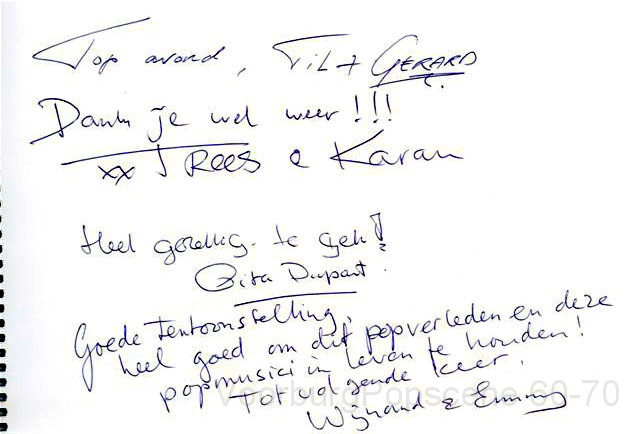 Top avond, Til + GERARD
Dank je wel weer!!!
xx TREES e Karan
Heel gezellig. te gek!
Rita Dupart.
Goede tentoonstelling,
heel goed om dit popverleden en deze
popmusici in leven te houden!
Tot volgende keer.
Wijnand & Emmy
VoorburgPopscene 60-70